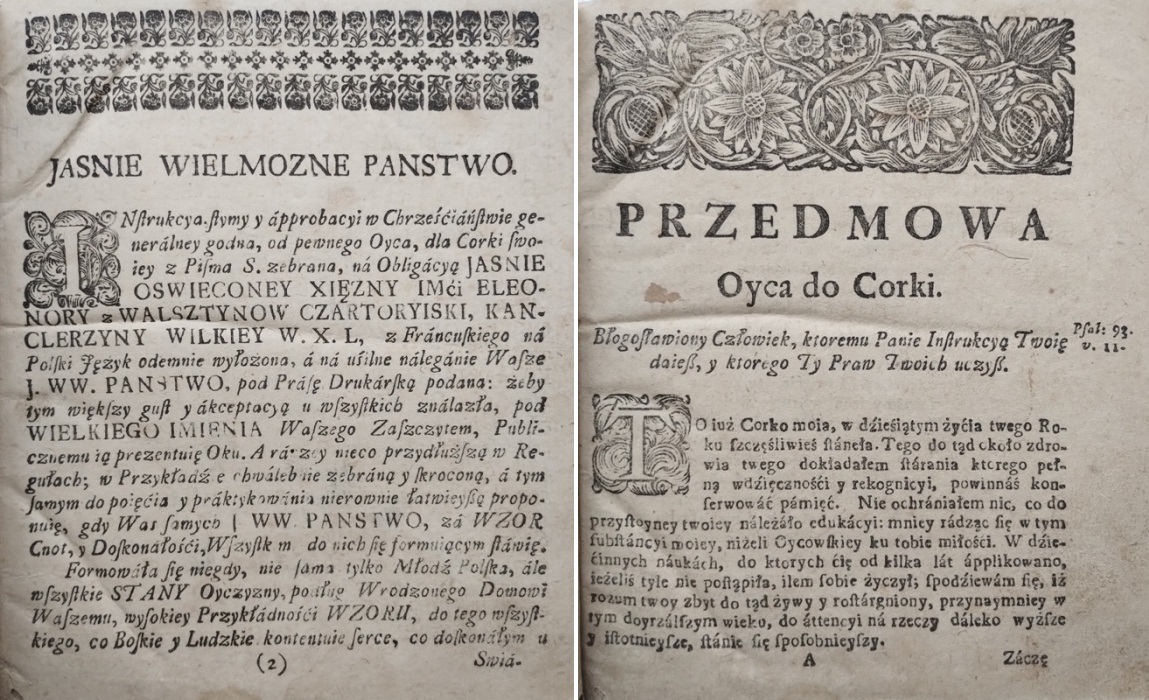 JASNIE WIELMOZNE PANSTWO.
INſtrukcya ſtymy y ápprobacyi w Chrześćiáńſtwie ge-
nerálney godna, od pewnego Oyca, dla Corki ſwo-
iey z Piſma S. zebrana, ná Obligácyą JASNIE
OSWIECONEY XIĘZNY IMći ELEO-
NORY z WALSZTYNOW CZARTORYISKI, KAN-
CLERZYNY WILKIEY W. X. L, z Fráncuſkiego ná
Polſki Język odemnie wyłożona, á ná uſilne náleganie Waſze
J. WW. PANSTWO, pod Práſę Drukárſką podana: żeby
tym większy guſt y ákceptacyą u wſzyſtkich ználazła, pod
WIELKIEGO IMIENIA Waſzego Zaſzczytem, Publi-
cznemu ią prezentuię Oku. A ráczey nieco przydłużſzą w Re-
gułach; w Przykłádźe chwálebnie zebráną y ſkroconą, á tym
ſamym do poięćia y práktykowánia nierownie łatwieyßą propo-
nuię, gdy Was ſamych J WW. PANSTWO, zá WZOR
Cnot, y Doſkonáłośći, Wſzyſtk m do nich ſię formuiącym ſtáwię.
Formowáła ſię niegdy, nie ſama tylko Młodź Polſka, ále
wſzyſtkie STANY Oyczyzny, podług Wrodzonego Domowi
Waſzemu, wyſokiey Przykłádnośći WZORU, do tego wſzyſt-
kiego, co Boſkie y Ludzkie kontentuie ſerce, co doſkonáłym u
(2) Swiá-
PRZEDMOWA
Oyca do Corki.
Błogoſławiony Człowiek, ktoremu Panie Inſtrukcyą Twoię
daieß, y ktorego Ty Praw Twoich uczyß.
Pſal: 93.
v. 11.
TO iuż Corko moia, w dźieśiątym życia twego Ro-
ku ſzczęśliwieś ſtáneła. Tego do tąd około zdro-
wia twego dokładałem ſtárania ktorego peł-
ną wdźięcznośći y rekognicyi, powinnáś kon-
ſerwować pámięć. Nie ochrániałem nic, co do
przyſtoyney twoiey náleżáło edukácyi: mniey rádząc ſię w tym
ſubſtáncyi moiey, niżeli Oycowſkiey ku tobie miłośći. W dźie-
ćinnych náukách, do ktorych ćię od kilka lát ápplikowano,
ieżeliś tyle nie poſtąpiła, ilem ſobie życzył; ſpodźiewám ſię, iż
rozum twoy zbyt do tąd żywy y roſtárgniony, przynaymniey w
tym doyrzálſzym wieku, do áttencyi ná rzeczy dáleko wyższe
y iſtotnieyſze, ſtánie ſię ſpoſobnieyſzy.
A Záczę